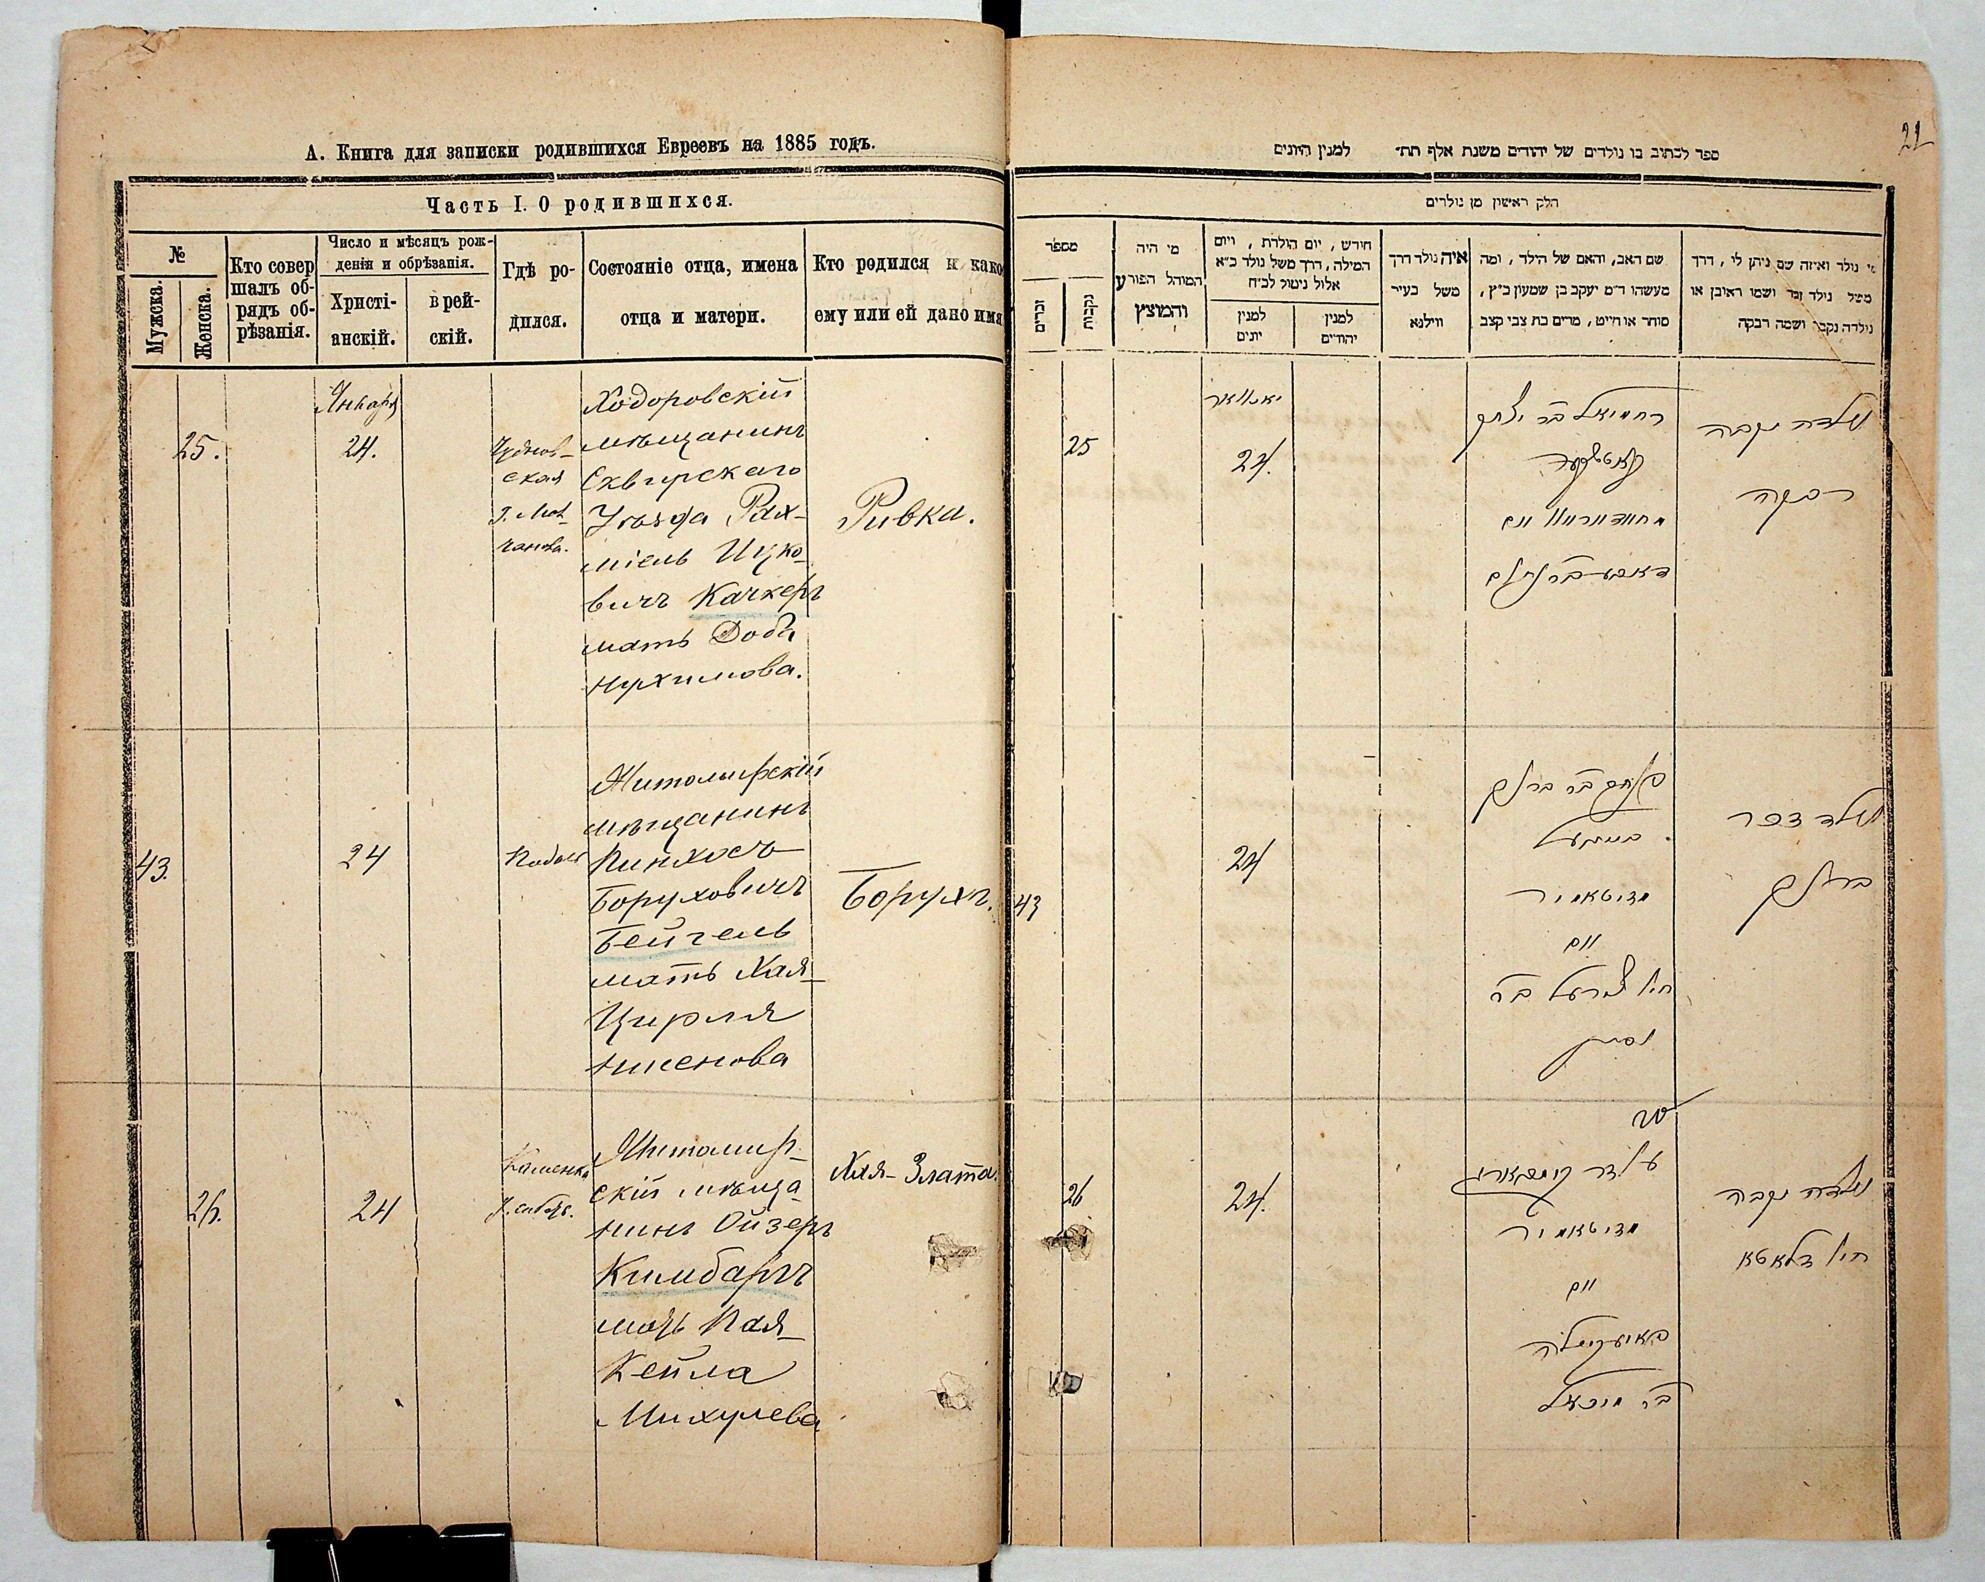 А. Книга для записки родившихся Евреевъ на 1885 годъ.
Часть I. О родившихся.
№
Мужска.
Женска.
Кто совер
шалъ об-
рядъ об-
рѣзанія.
Число и мѣсяцъ рож-
денія и обрѣзанія.
Христі-
анскій.
в рей-
скій.
Гдѣ ро-
дился.
Состояніе отца, имена
отца и матери.
Кто родился и како
ему или ей дано имя
25.
Января
24.
Ходоровскій
мѣщанинъ
Сквирскаго
Уѣзда Рах-
міель Ицко-
вичъ Качкеръ
мать Доба
Нухимова.
Ривка.
43.
24
Подолъ
Житомирскій
мѣщанинъ
Пинхосъ
Боруховичъ
Бейгель
мать Хая-
Цирля
Нисенова
Борухъ.
26.
24
Житомир-
скій мѣща-
нинъ Ойзеръ
Кимбаргъ
мать Пая-
Кейла
Михулева
Хая-Злата.
21
ספר לכתוב בו נולדים של יהודים משנת אלף תת״ למנין היונים
חלק ראשון מן נולדים
מספר
זכרים
נקבות
מי היה
המוהל הפורע
והמוצץ
חודש, יום הולדת, ויום
המילה, דרך משל נולד כ״א
אלול ניטול לכ״ח
למנין
יונים
למנין
יהודים
איה נולד דרך
משל בעיר
ווילנא
שם האב, והאם של הילד, ומה
מעשהו ד״מ יעקב בן שמעון כ״ץ,
סוחר או חייט, מרים בת צבי קצב
מי נולד ואיזה שם ניתן לו, דרך
משל נולד זכר ושמו ראובן או
נולדה נקבה ושמה רבקה
25
יאנוואר
24.
רחמיאל בר יצחק
נולדה נקבה
רבקה
43
24
פנחס בר ברוך
בייגעל
מזיטאמיר
ואם
חיה צירעל בר
ניסן
נולד זכר
ברוך
26
24.
מזיטאמיר
ואם
בר מיכאל
נולדה נקבה
חיה זלאטא